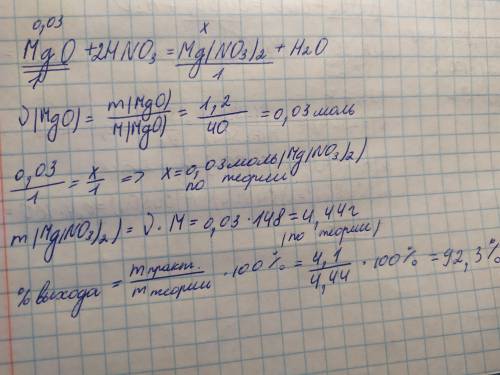 0,03 x
MgO + 2HNO3 = Mg(NO3)2 + H2O
1 1
ν(MgO) = m(MgO)/M(MgO) = 1,2/40 = 0,03 моль
0,03/1 = x/1 => x = 0,03 моль (Mg(NO3)2)
по теории
m(Mg(NO3)2) = ν · M = 0,03 · 148 = 4,44 г
(по теории)
% выхода = m практ./m теории · 100% = 4,1/4,44 · 100% = 92,3%